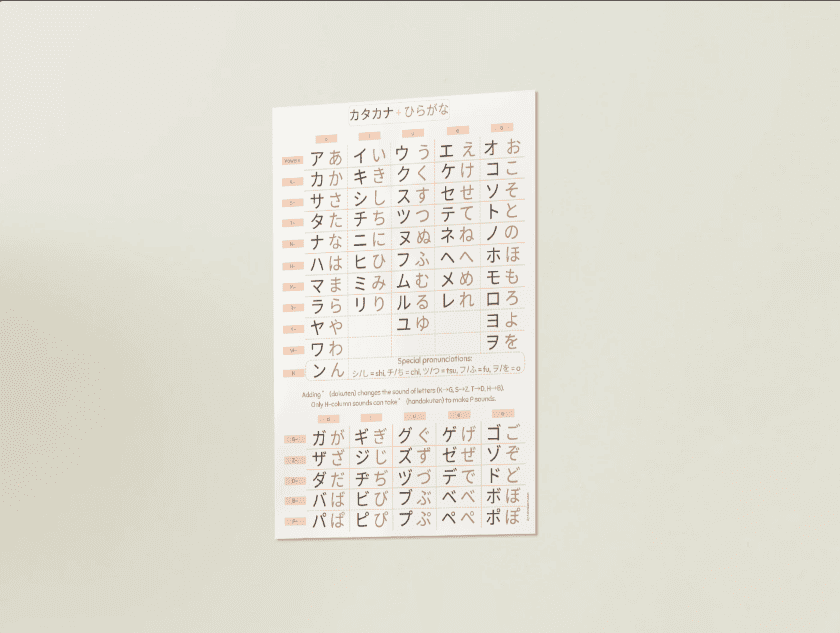 カタカナ + ひらがな
ア あ イ い ウ う エ え オ お
カ か キ き ク く ケ け コ こ
サ さ シ し ス す セ せ ソ そ
タ た チ ち ツ つ テ て ト と
ナ な ニ に ヌ ぬ ネ ね ノ の
ハ は ヒ ひ フ ふ ヘ へ ホ ほ
マ ま ミ み ム む メ め モ も
ラ ら リ り ル る レ れ ロ ろ
ヤ や ユ ゆ ヨ よ
ワ わ ヲ を
ン ん
Special pronunciations:
シ/し = shi, チ/ち = chi, ツ/つ = tsu, フ/ふ = fu, ヲ/を = o
Adding ゛ (dakuten) changes the sound of letters (K→G, S→Z, T→D, H→B).
Only H-column sounds can take ゜ (handakuten) to make P sounds.
ガ が ギ ぎ グ ぐ ゲ げ ゴ ご
ザ ざ ジ じ ズ ず ゼ ぜ ゾ ぞ
ダ だ ヂ ぢ ヅ づ デ で ド ど
バ ば ビ び ブ ぶ ベ べ ボ ぼ
パ ぱ ピ ぴ プ ぷ ペ ぺ ポ ぽ